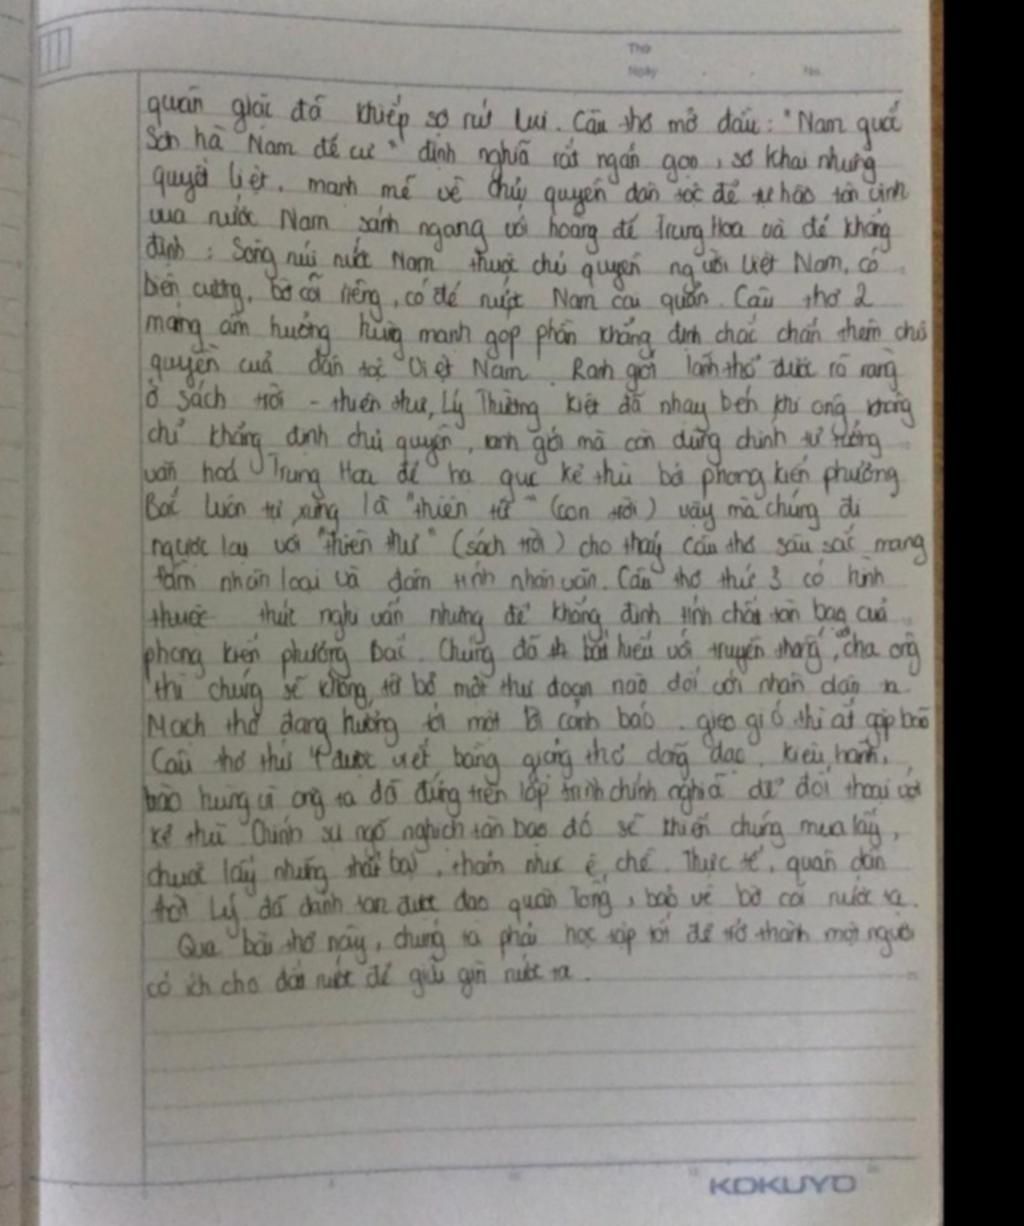 Thứ
Ngày No.
quân giặc đã khiếp sợ rút lui. Câu thơ mở đầu: "Nam quốc
Sơn hà Nam đế cư" định nghĩa rất ngắn gọn, sơ khai nhưng
quyết liệt, mạnh mẽ về chủ quyền dân tộc để tự hào tôn vinh
vua nước Nam sánh ngang với hoàng đế Trung Hoa và để khẳng
định: Sông núi nước Nam thuộc chủ quyền người Việt Nam, có
biên cương, bờ cõi riêng, có đế nước Nam cai quản. Câu thơ 2
mang âm hưởng hùng mạnh góp phần khẳng định chắc chắn thêm chủ
quyền cuả dân tộc Việt Nam. Ranh giới lãnh thổ được rõ ràng
ở sách trời - thiên thư, Lý Thường Kiệt đã nhạy bén khi ông không
chỉ khẳng định chủ quyền, ranh giới mà còn dùng chính tư tưởng
văn hoá Trung Hoa để hạ gục kẻ thù bởi phong kiến phương
Bắc luôn tự xưng là "thiên tử" (con trời) vậy mà chúng đi
ngược lại với "thiên thư" (sách trời) cho thấy câu thơ sâu sắc mang
tầm nhân loại và đậm tính nhân văn. Câu thơ thứ 3 có hình
thước thức nghi vấn nhưng để khẳng định tính chất tàn bạo cuả
phong kiến phương Bắc. Chúng đã bất hiếu với truyền thống, cha ông
thì chúng sẽ không từ bỏ một thủ đoạn nào đối với nhân dân ta.
Mạch thơ đang hướng tới một lời cảnh báo, gieo gió thì ắt gặp bão
Câu thơ thứ 4 được viết bằng giọng thơ dõng dạc, kiêu hãnh,
hào hùng vì ông ta đã đứng trên lập trình chính nghĩa để đối thoại với
kẻ thù. Chính sự ngỗ nghịch tàn bạo đó sẽ khiến chúng mua lấy,
chuốc lấy những thất bại, thảm như ê chề. Thực tế, quân dân
thời Lý đã đánh tan được đạo quân Tống, bảo vệ bờ cõi nước ta.
Qua bài thơ này, chúng ta phải học tập tốt để trở thành một người
có ích cho đất nước để giữ gìn nước ta.
KOKUYO